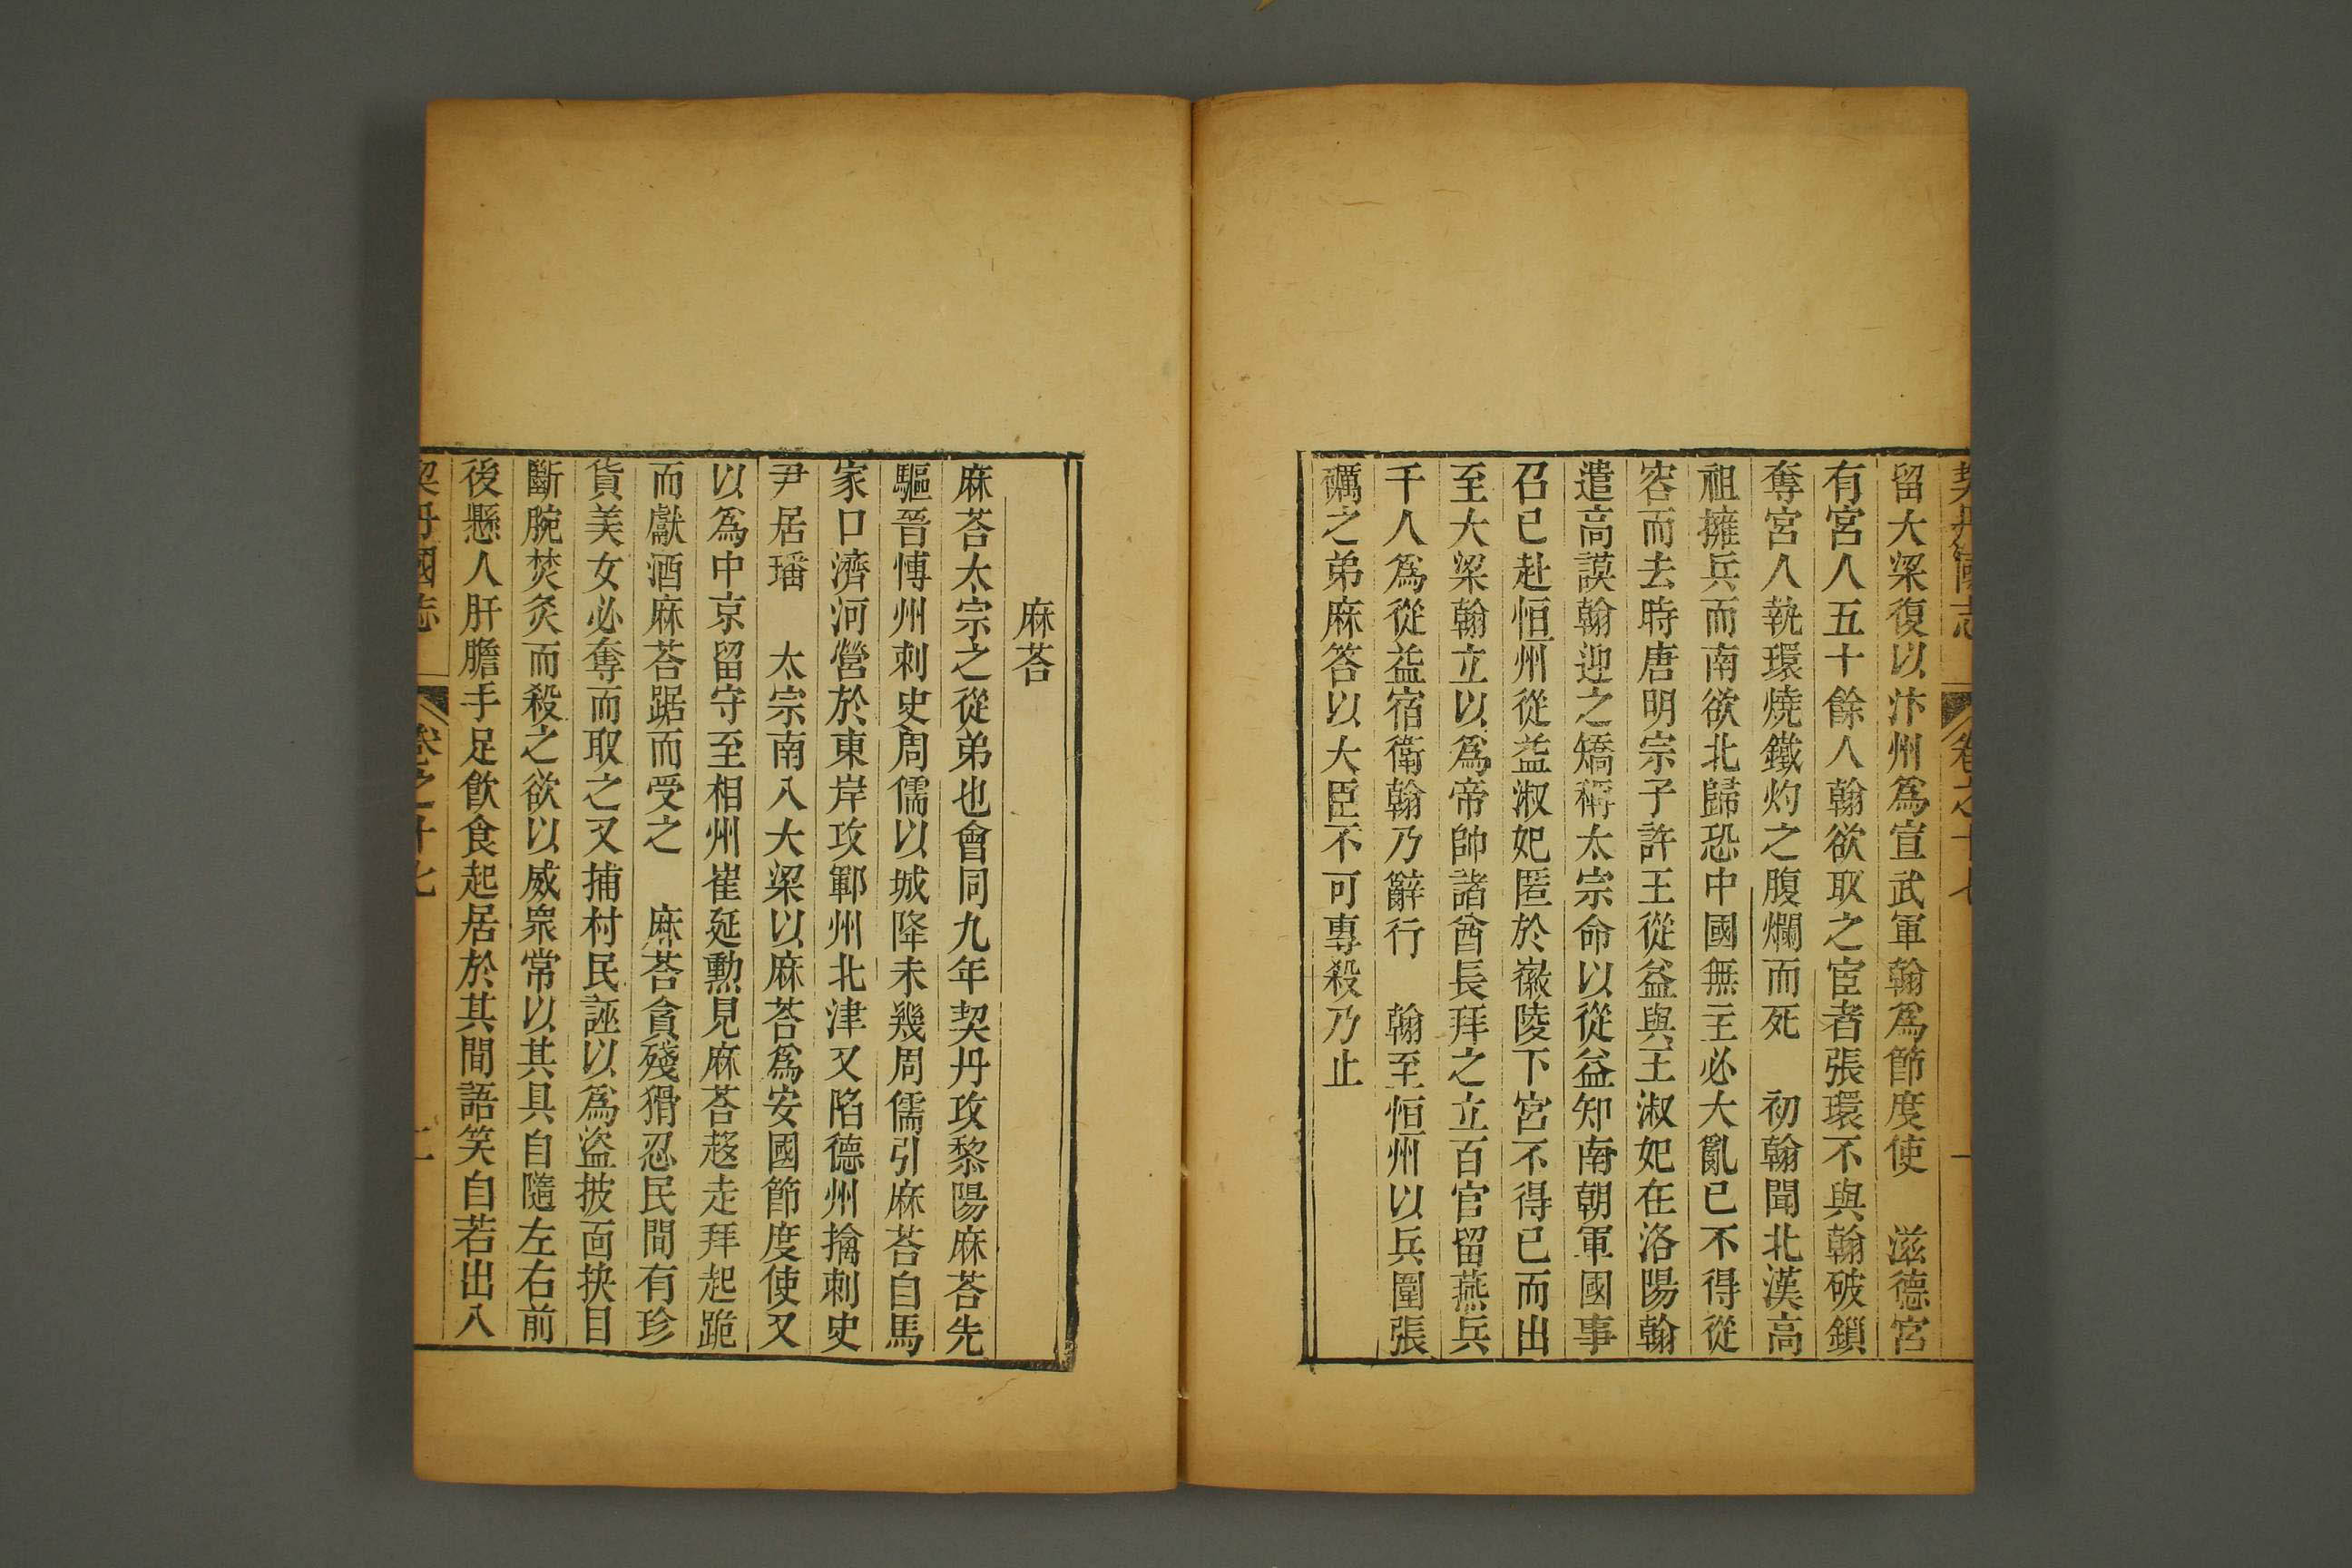 契丹國志 卷之十七 一
留大梁復以汴州爲宣武軍翰爲節度使　滋德宮
有宮人五十餘人翰欲取之宦者張環不與翰破鎖
奪宮人執環燒鐵灼之腹爛而死　初翰聞北漢高
祖擁兵而南欲北歸恐中國無主必大亂已不得從
容而去時唐明宗子許王從益與王淑妃在洛陽翰
遣高謨翰迎之矯稱太宗命以從益知南朝軍國事
召已赴恒州從益淑妃匿於徽陵下宮不得已而出
至大梁翰立以爲帝帥諸酋長拜之立百官留燕兵
千人爲從益宿衛翰乃辭行　翰至恒州以兵圍張
礪之弟麻答以大臣不可專殺乃止
麻荅
麻荅太宗之從弟也會同九年契丹攻黎陽麻荅先
驅晉愽州刺史周儒以城降未幾周儒引麻荅自馬
家口濟河營於東岸攻鄆州北津又陷德州擒刺史
尹居璠　太宗南入大梁以麻荅爲安國節度使又
以爲中京留守至相州崔延勳見麻荅趍走拜起跪
而獻酒麻荅踞而受之　麻荅貪殘猾忍民間有珍
貨美女必奪而取之又捕村民誣以爲盜披面抉目
斷腕焚炙而殺之欲以威衆常以其具自隨左右前
後懸人肝膽手足飲食起居於其間語笑自若出入
契丹國志 卷之十七 二